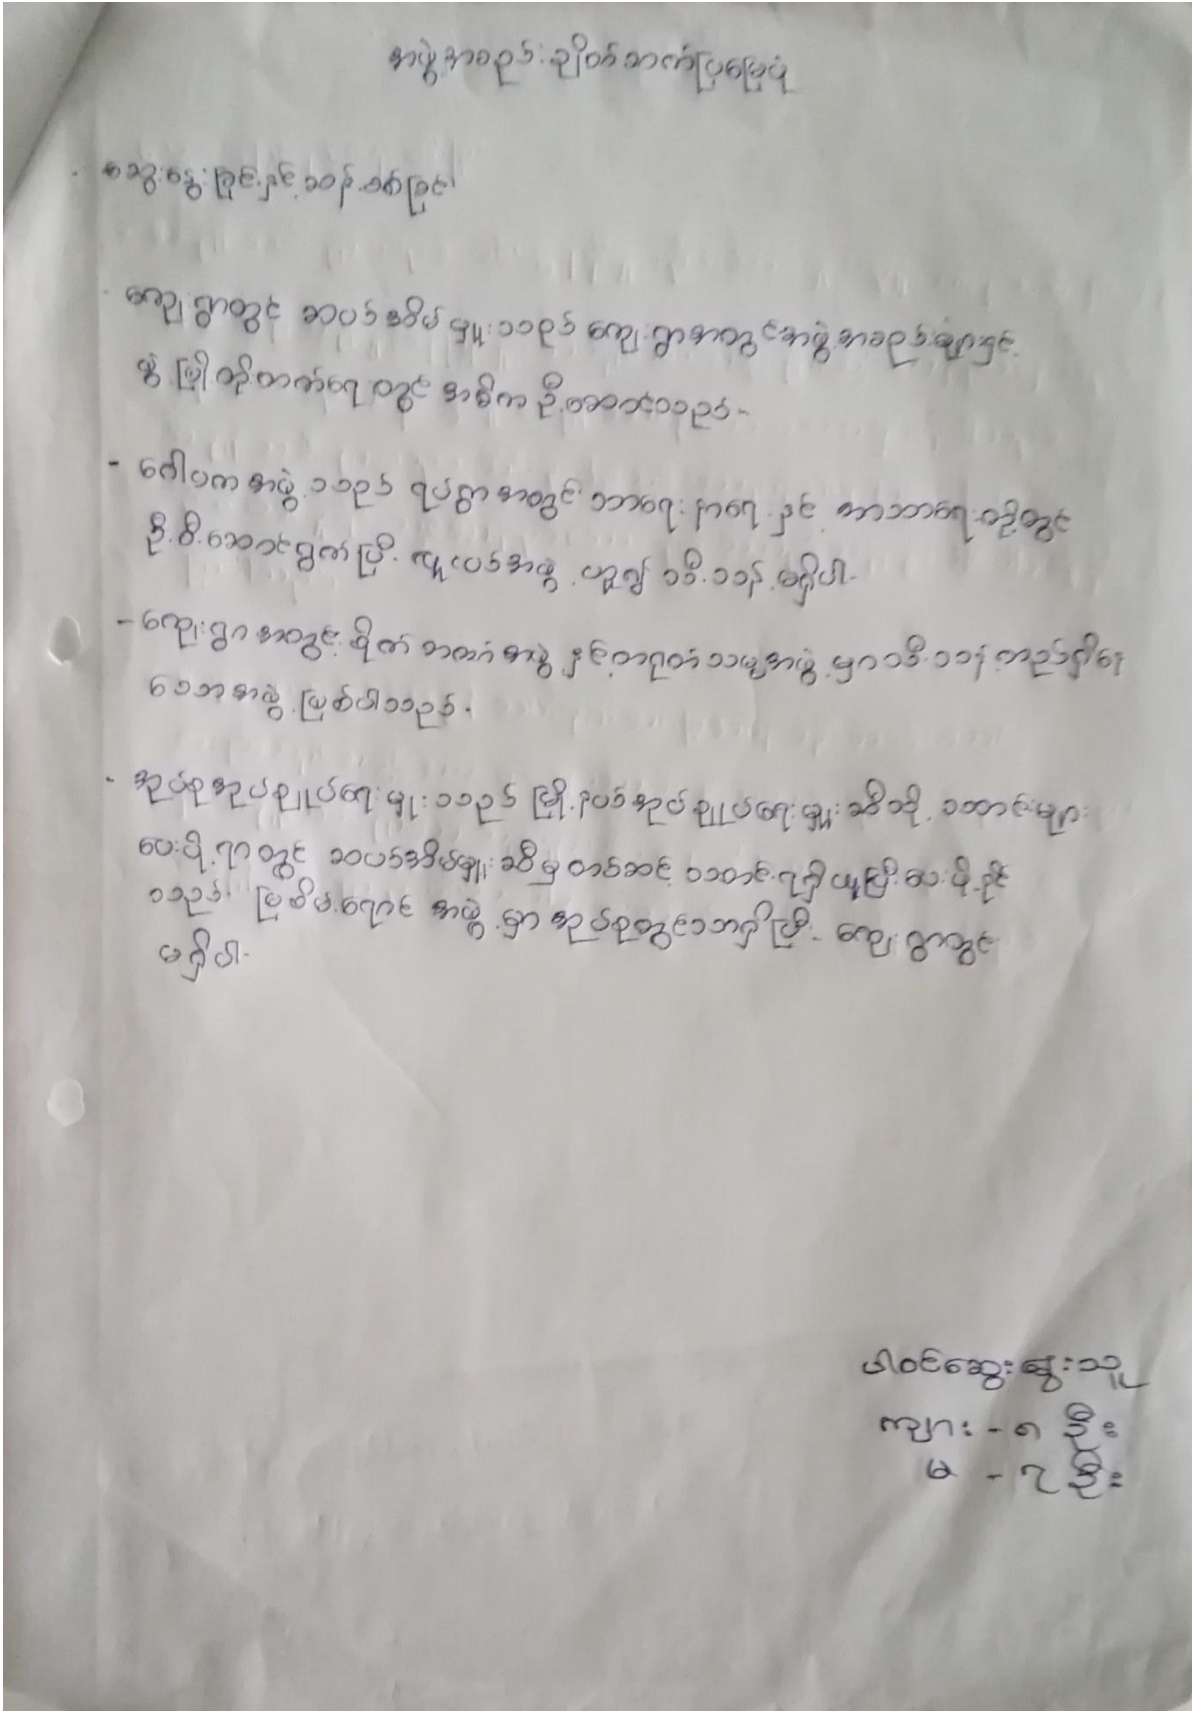 အဖွဲ့အစည်းချိတ်ဆက်ပြမြေပုံ
ဆွေးနွေးခြင်းနှင့်ဆန်းစစ်ခြင်း
ကျေးရွာတွင် ဆယ်အိမ်မှူးသည် ကျေးရွာအတွင်းအဖွဲ့အစည်းများနှင့်
ဖွံ့ဖြိုးတိုးတက်ရေးတွင် အဓိက ဦးဆောင်သည်-
- ဂေါပကအဖွဲ့သည် ရပ်ရွာအတွင်း သာရေးနာရေးနှင့် ဘာသာရေးတို့တွင်
ဦးစီးဆောင်ရွက်ပြီး လူငယ်အဖွဲ့ ဟူ၍ သီးသန့်မရှိပါ-
- ကျေးရွာအတွင်း စိုက် အဖွဲ့နှင့် အဖွဲ့မှာသီးသန့်တည်ရှိနေ
သောအဖွဲ့ဖြစ်ပါသည်-
- အုပ်စုအုပ်ချုပ်ရေးမှူးသည် မြို့နယ်အုပ်ချုပ်ရေးမှူးဆီသို့ သတင်းများ
ပေးပို့ရာတွင် ဆယ်အိမ်မှူးဆီမှတစ်ဆင့် သတင်းရရှိယူပြီးပေးပို့နိုင်
သည်၊ ငြိမ်းရေး အဖွဲ့မှာ အုပ်စုတွင်သာရှိပြီး- ကျေးရွာတွင်
မရှိပါ-
ပါဝင်ဆွေးနွေးသူ
ကျား - ၈ ဦး
မ - ၇ ဦး